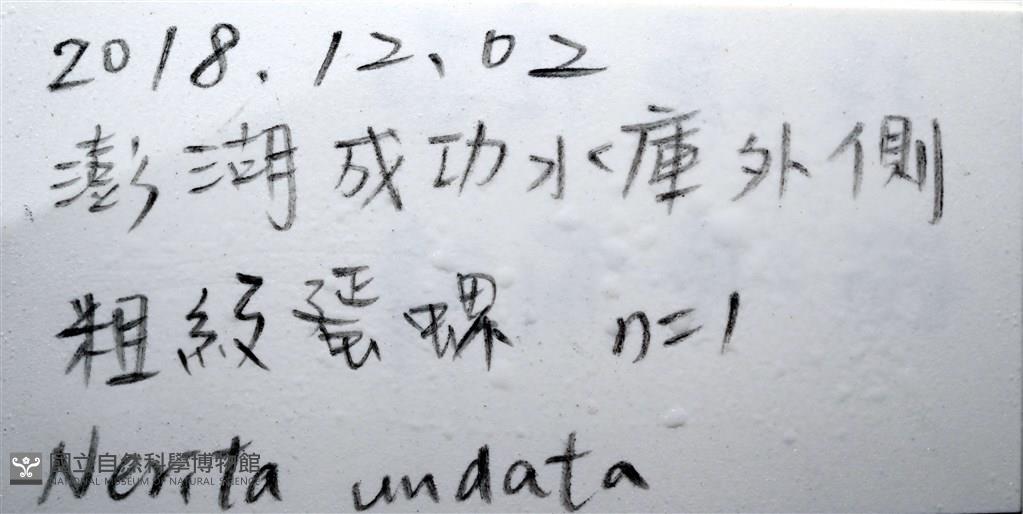 2018.12、02
澎湖成功水庫外側
粗紋蜑螺 n=1
Nerita undata
國立自然科學博物館
NATIONAL MUSEUM OF NATURAL SCIENCE